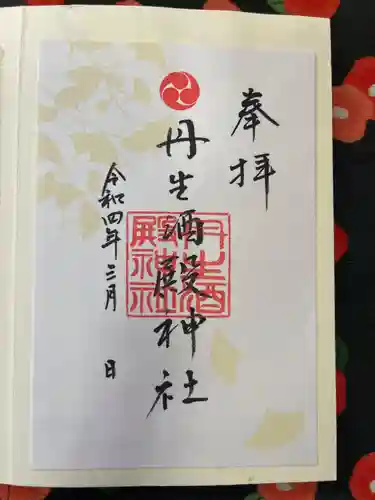 奉拝
丹生酒殿神社
丹生酒
殿神社
令和四年三月 日